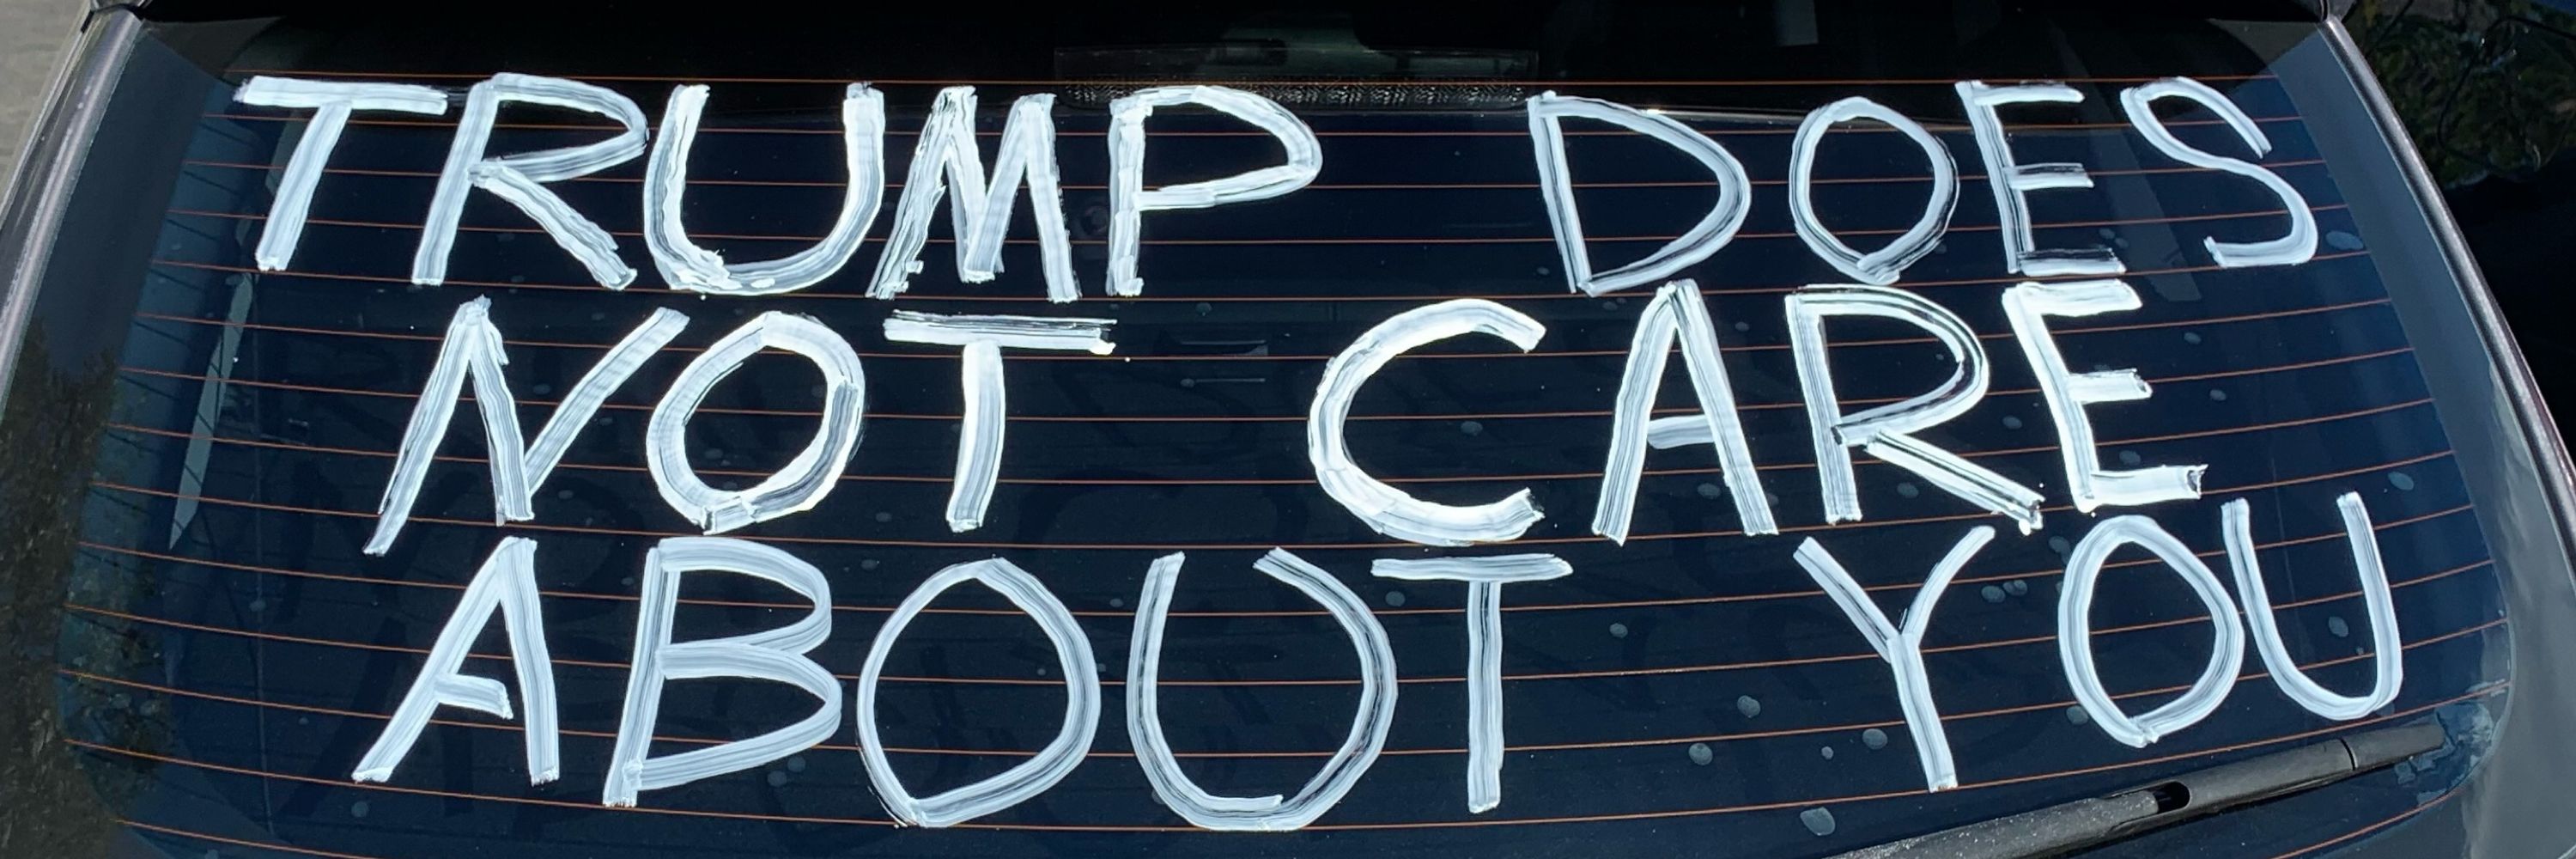 TRUMP DOES
NOT CARE
ABOUT YOU